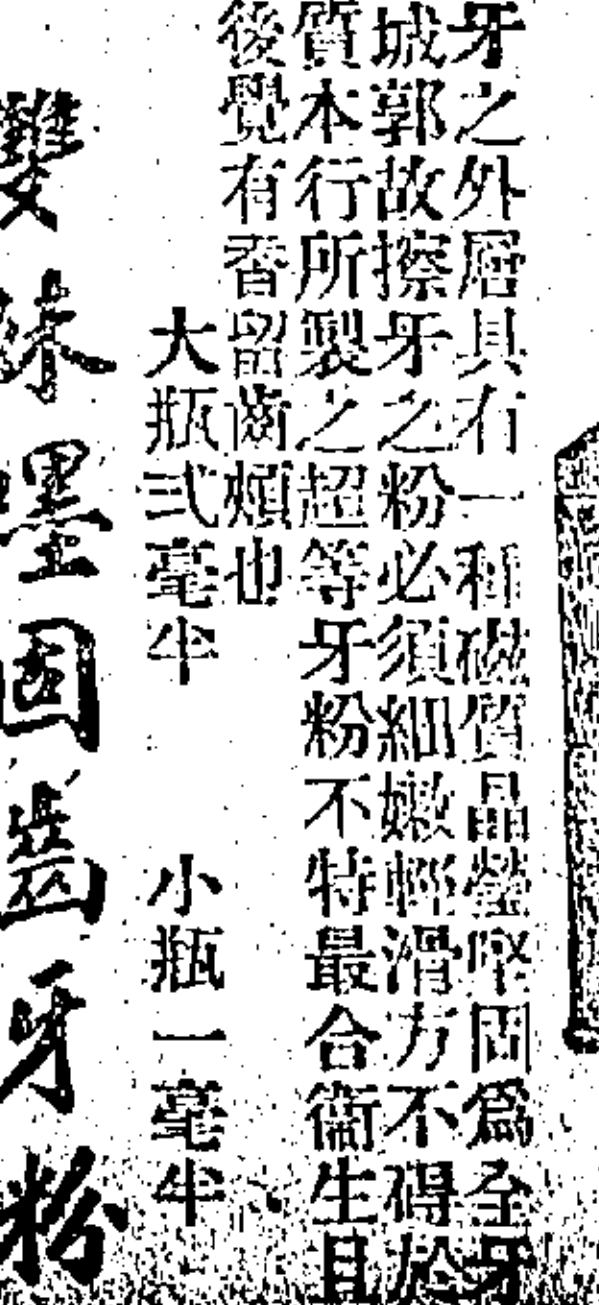 牙之外層具有一種磁質晶瑩堅固爲全牙
城郭故擦牙之粉必須細嫩輕滑方不碍於
質本行所製之超等牙粉不特最合衞生且
後覺有香留齒頰也
大瓶弍毫半 小瓶一毫半
雙妹墨固齒牙粉